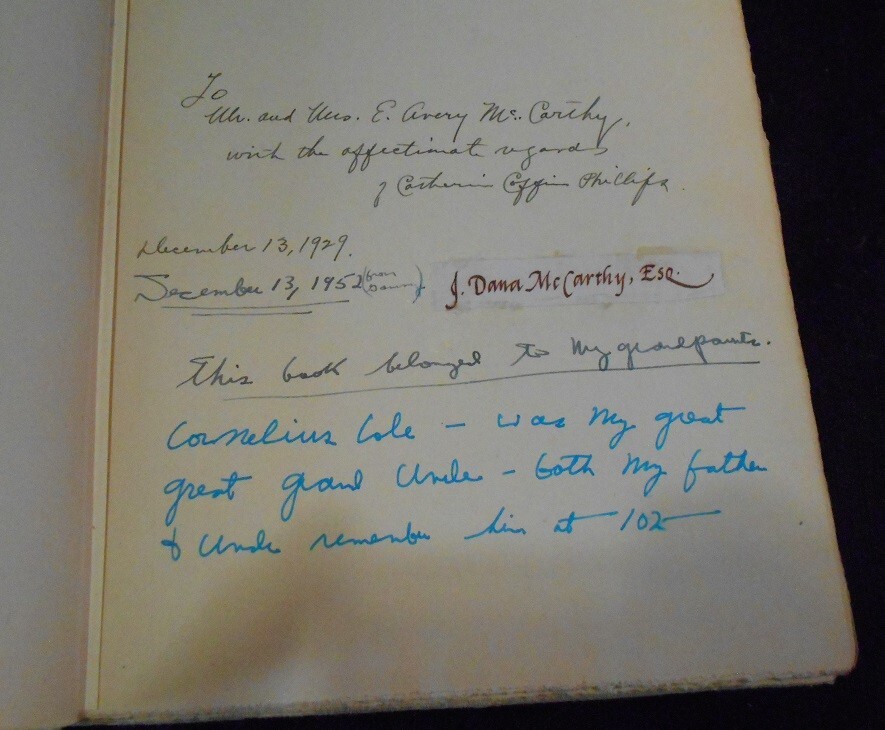 To
Mr. and Mrs. E. Avery McCarthy,
with the affectionate regards
of Catherine Coffin Phillips.
December 13, 1929.
December 13, 1952 (from
J. Dana McCarthy, Esq.
This book belonged to my grandparents.
Cornelius Cole – was my great
great grand Uncle – both my father
& Uncle remember him at 102